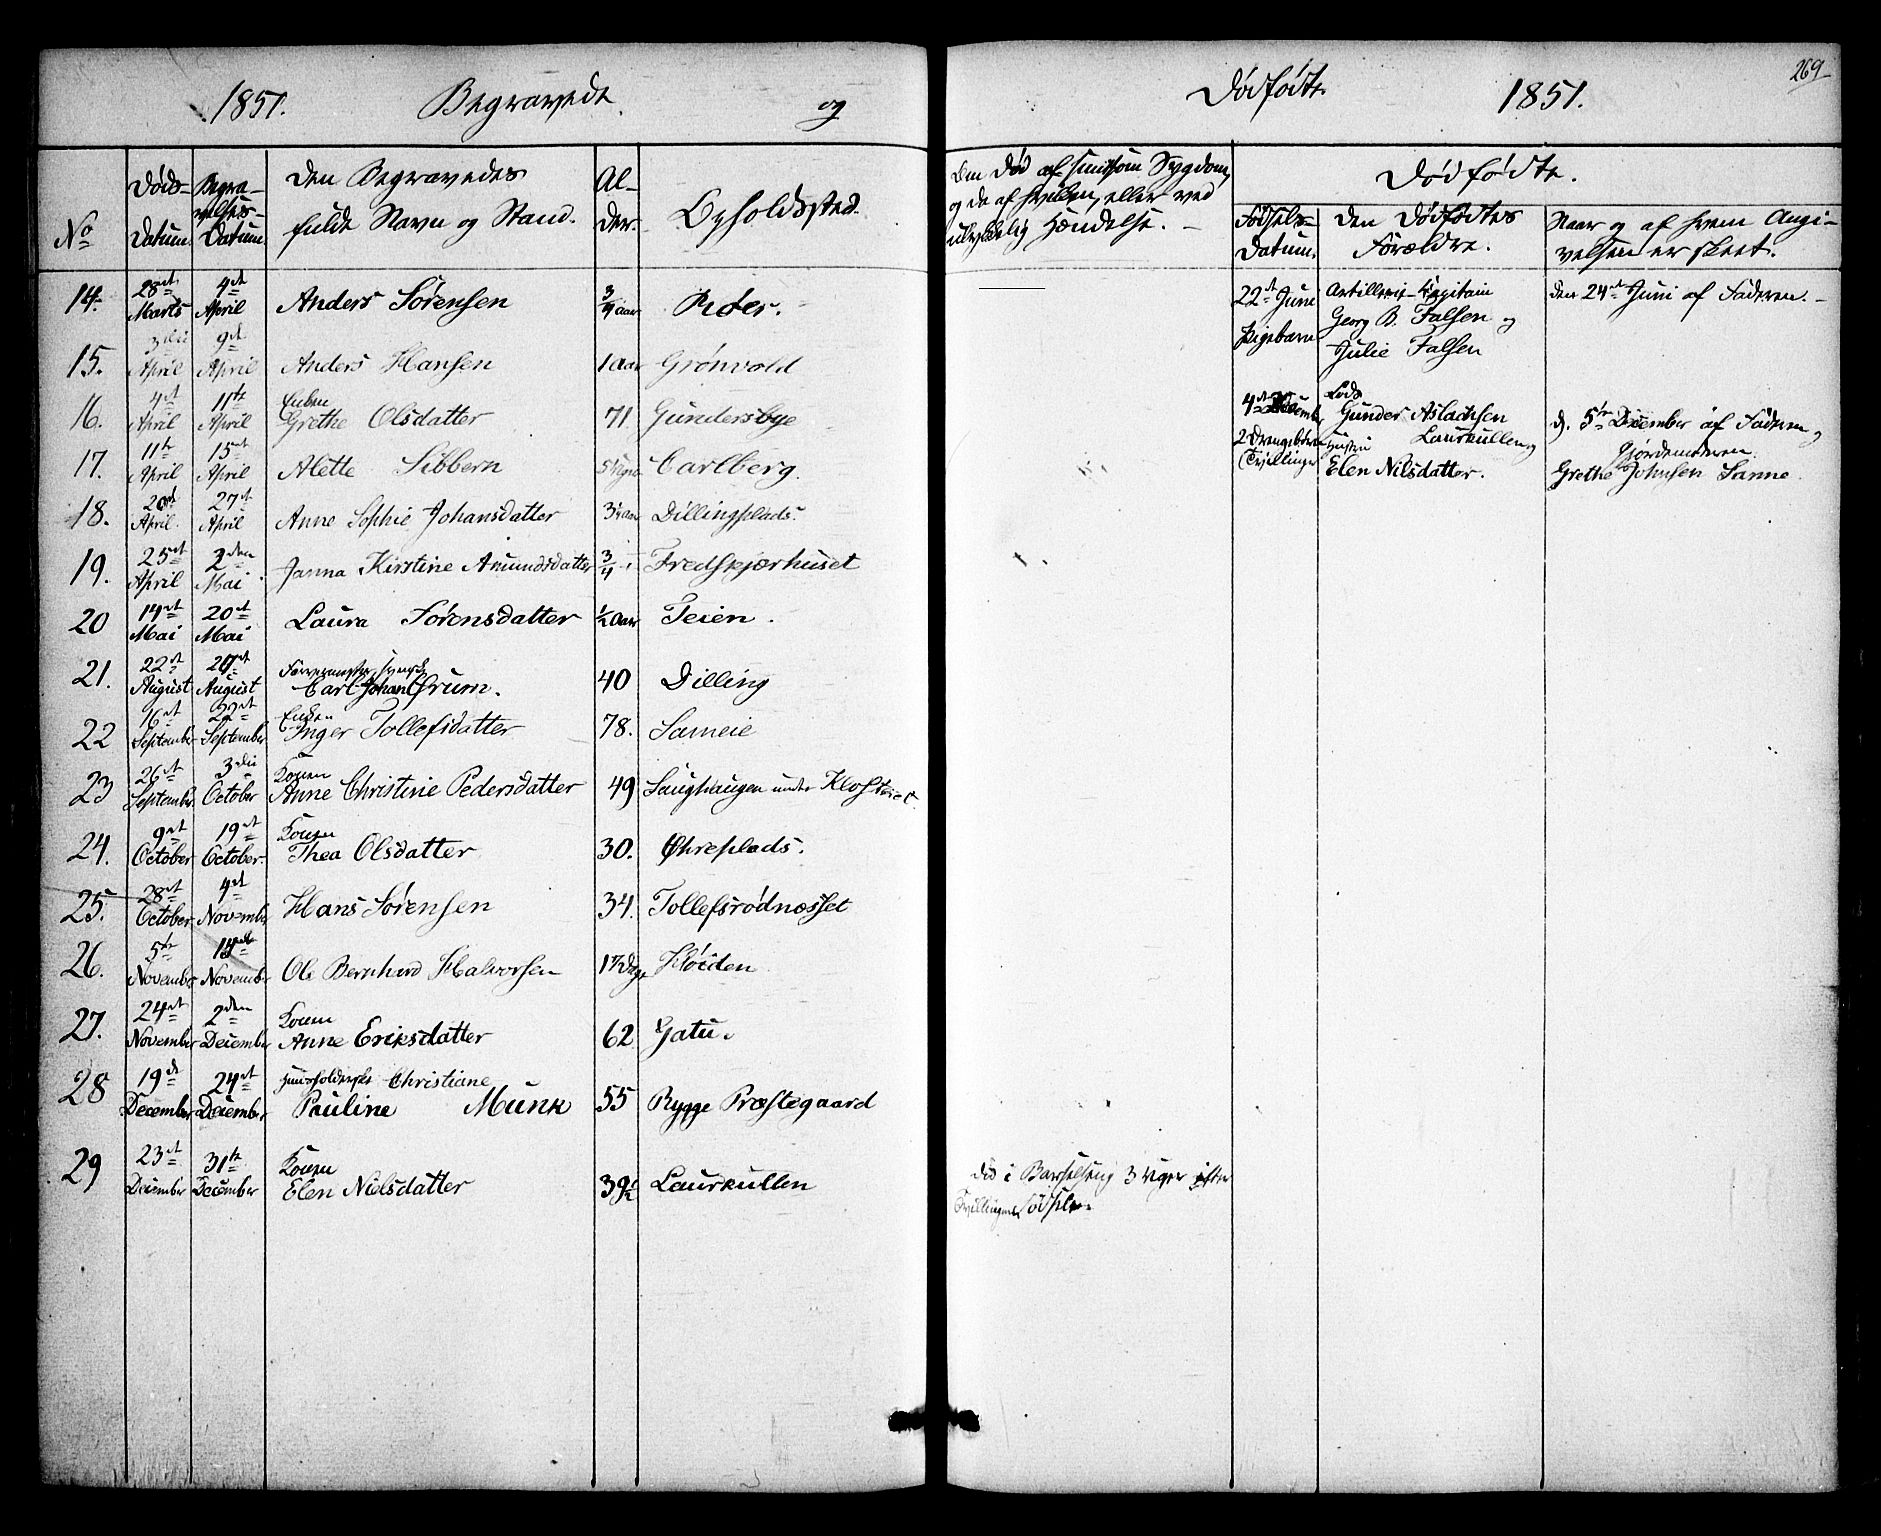 1851. Begravede og
Dødfødte. 1851.
269
No
Døds-
Datum.
Begra-
velses-
Datum.
Den Begravedes
fulde Navn og Stand.
Al-
der.
Opholdsted.
Om Død af smitsom Sygdom,
og da af hvilken, eller ved
ulykkelig Hændelse. -
Dødfødte.
Fødsels-
Datum.
Den Dødfødtes
Forældre.
Naar og af hvem Angi-
velsen er skeet.
14. 28de Marts 4de April Anders Sørensen 3/4 aar
15. 3die April 9de April Anders Hansen 1 aar Grønvold
16. 4de April 11te April Enken Grethe Olsdatter 71 Gundersbye
17. 11te April 15de April Alette Sibbern Carlberg.
18. 20de April 27de April Anne Sophie Johansdatter Dillingplads.
19. 25de April 2den Mai Janna Kirstine Amundsdatter 3/4 Fredskjærhuset
20 14de Mai 20de Mai Laura Sørensdatter 1/2 aar Teien.
21. 22de August August Carl Johan 40 Dilling
22 16de September 22de September Enken Inger Tollefsdatter 78. Sameie
23 26de September 3die October Konen Anne Christine Pedersdatter 49 Haughaugen under Klosteret.
24. 9de October 19de October Konen Thea Olsdatter 30. Øhreplads.
25. 28de October 4de November Hans Sørensen 34. Tollefsrødnæsset
26. 5te November November Ole Bernhard Halvorsen Kløiden
27. 24de November 2den December Konen Anne Eriksdatter 62 Gatu.
28 19de December 24de December Huusholderske Christiane
Pauline Munk 55 Rygge Præstegaard
29 23de December 31te December Konen Elen Nielsdatter 39 1/2 Laurkullen
Død i Barselseng 3 Uger efter
Tvillingers Fødsel.
22de Juni
Pigebarn
Artillerie-Capitain
Georg B. Falsen og
Julie Falsen
den 24de Juni af Faderen. -
4de December
2 Drengebørn
(Tvillinger
Lods
Gunder Aslaksen
Laurkullen og
Hustru
Elen Nilsdatter.
d. 5te December af Faderen og
Gjordemoderen
Grethe Johnsen Sanne.